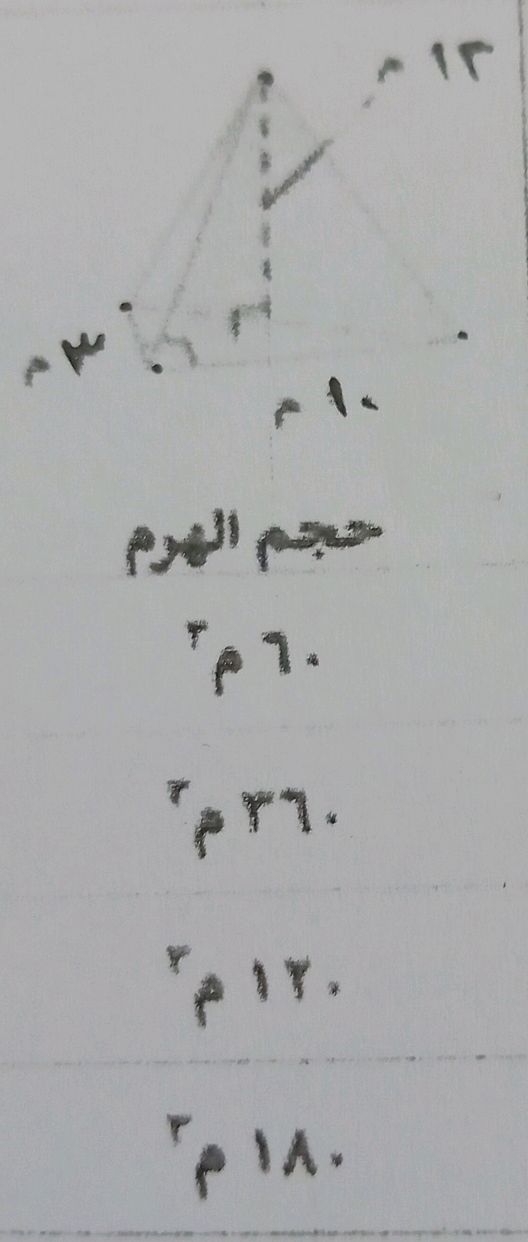 ١٢ م
٣ م
١٠ م
حجم الهرم
٦٠ م٣
٣٦٠ م٣
١٢٠ م٣
١٨٠ م٣